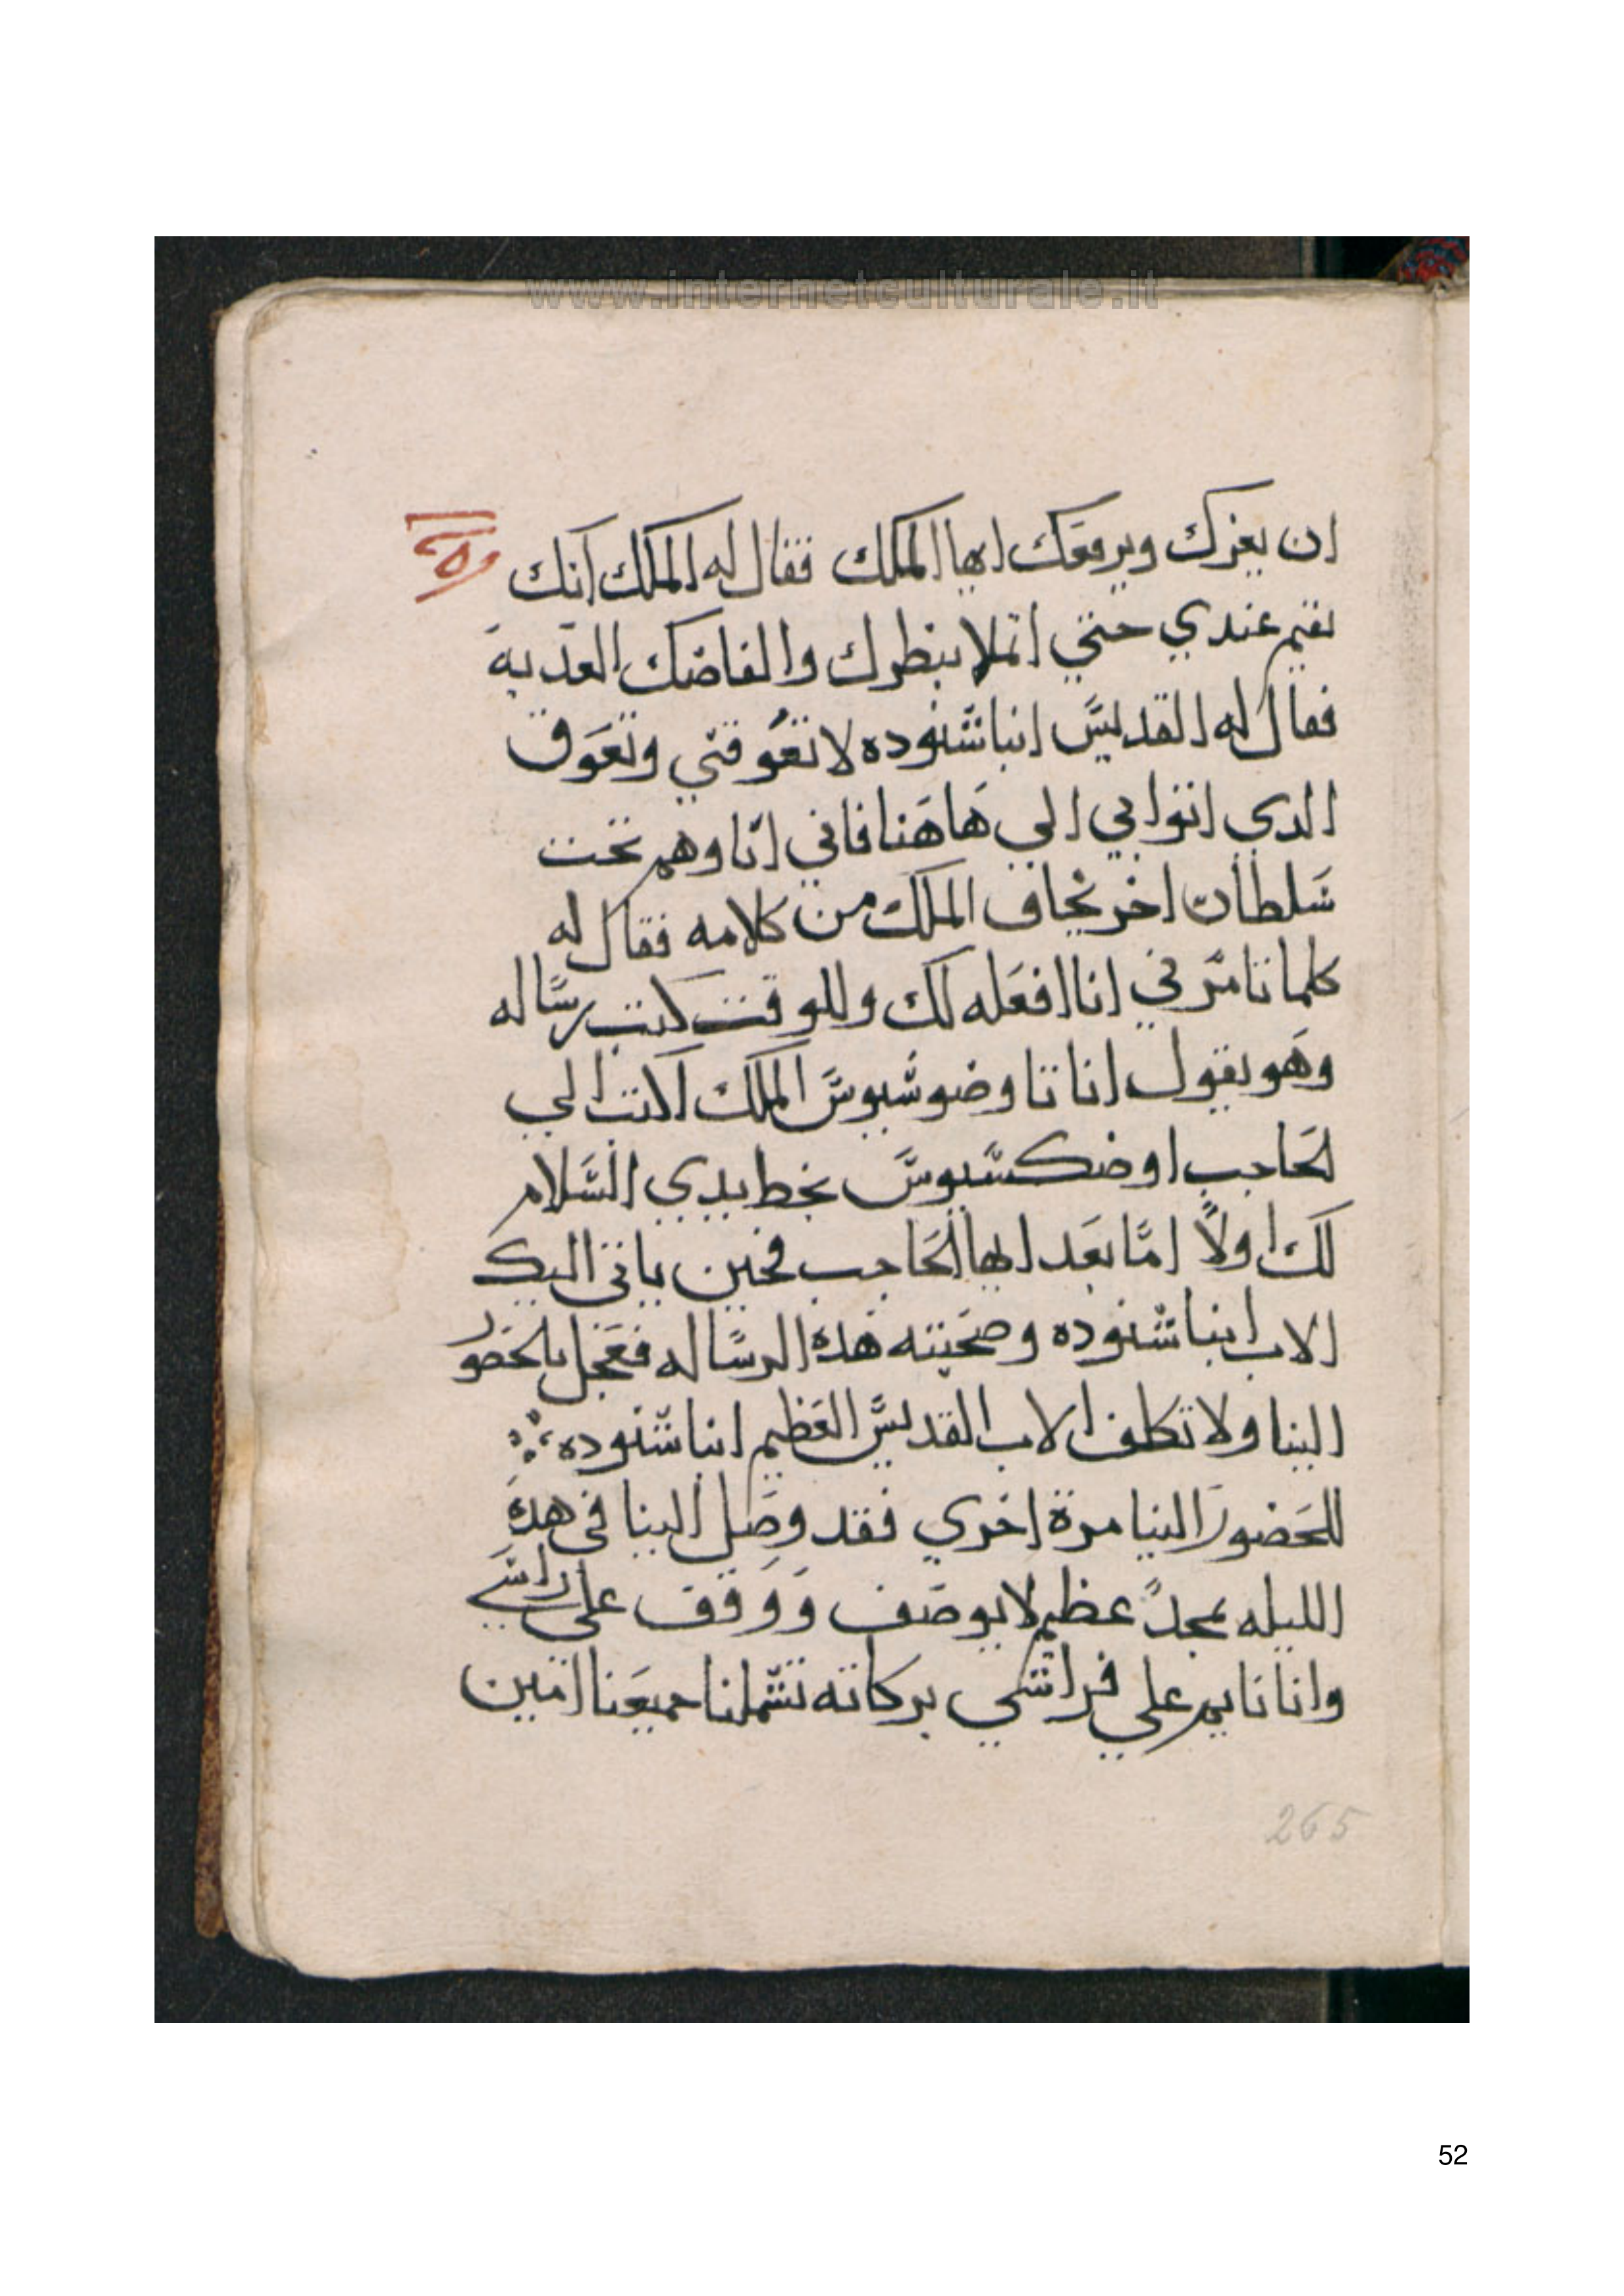 www.internetculturale.it
ان يعزك ويرفعك ايها الملك فقال له الملك انك
تقيم عندي حتي اتملا بنظرك والفاضك العدبه
فقال له القديس انبا شنوده لا تعوقني وتعوق
الدي اتوا بي الي هاهنا فاني انا وهم تحت
سلطان اخر نخاف الملك من كلامه فقال له
كلما تامرني انا افعله لك وللوقت كتب رساله
وهو يقول انا تاوضوسيوس الملك اكتب الي
لحاجب اوضكسيوس بخط يدي السلام
لك اولاً امّا بعد ايها الحاجب فحين ياتي اليك
الاب انبا شنوده وصحبته هده الرساله فعجل بلحضور
الينا ولا تكلف الاب القديس العظيم انبا شنوده
للحضور الينا مرة اخري فقد وصل الينا في هده
الليله بمجدً عظيم لا يوصف ووقف علي راسي
وانا نايم علي فراشي بركاته تشملنا جميعنا امين
265
52